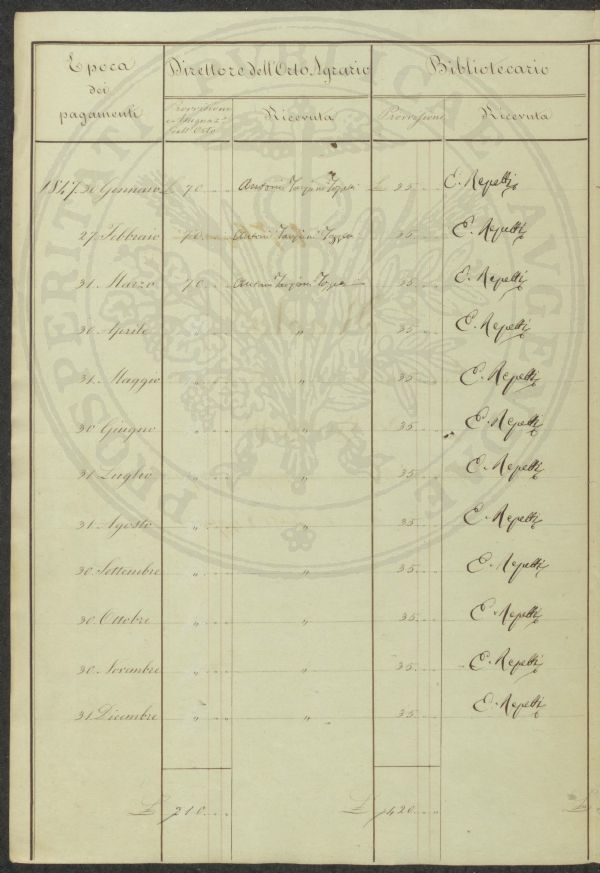 Epoca dei pagamenti | Direttore dell'Orto Agrario | Bibliotecario
Provvisione e Assegnaz.e dell'Orto | Ricevuta | Provvisione | Ricevuta
1847. 30 Gennaio £ 70 .. Antonio Targioni Tozzetti £ 35 .. E. Repetti
27. Febbraio 70 .. Antonio Targioni Tozzetti 35 .. E. Repetti
31. Marzo 70 .. Antonio Targioni Tozzetti 35 .. E. Repetti
30. Aprile " .. " 35 .. E. Repetti
31. Maggio " .. " 35 .. E. Repetti
30 Giugno " .. " 35 .. E. Repetti
31 Luglio " .. " 35 .. E. Repetti
31. Agosto " .. " 35 .. E. Repetti
30. Settembre " .. " 35 .. E. Repetti
30. Ottobre " .. " 35 .. E. Repetti
30. Novembre " .. " 35 .. E. Repetti
31. Dicembre " .. " 35 .. E. Repetti
£ 210 .. " £ 420 .. " £
PROSPERITATI PUBLICAE AUGENDAE